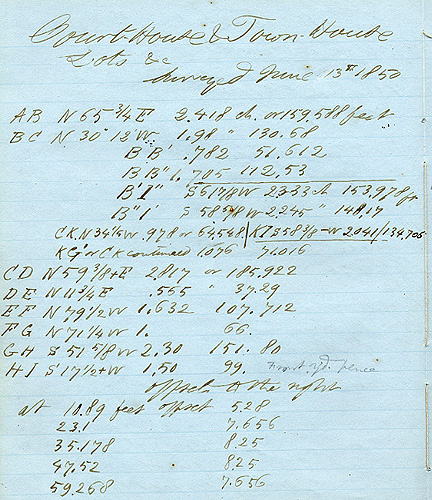 Court House & Town House
Lots &c
Surveyed June 13th 1850
AB N 65 3/4 E 2.418 ch. or 159.588 feet
BC N. 30° 12' W. 1.98 " 130.68
BB' .782 51.612
BB" 1.705 112.53
B'I" S 61 7/8 W 2333 ch 153.978 ft
B"I' W 2.245 " 148.17
CK. N 34 1/2 W .978 or 64.548 KI S 58 3/8 W 2041/134.706
KG or CK continued 1.076 71.016
CD N 59 3/8 E 2817 or 185.922
DE N 11 3/4 E .565 " 37.29
EF N 79 1/2 W 1.632 107.712
FG N 71 1/4 W 1. 66.
GH S 51 5/8 W 2.30 151.80
HI S 17 1/2 W 1.50 99. Front yd. fence
offsets to the right
at 10.89 feet offset 5.28
23.1 7.656
35.178 8.25
47.52 8.25
59.268 7.656